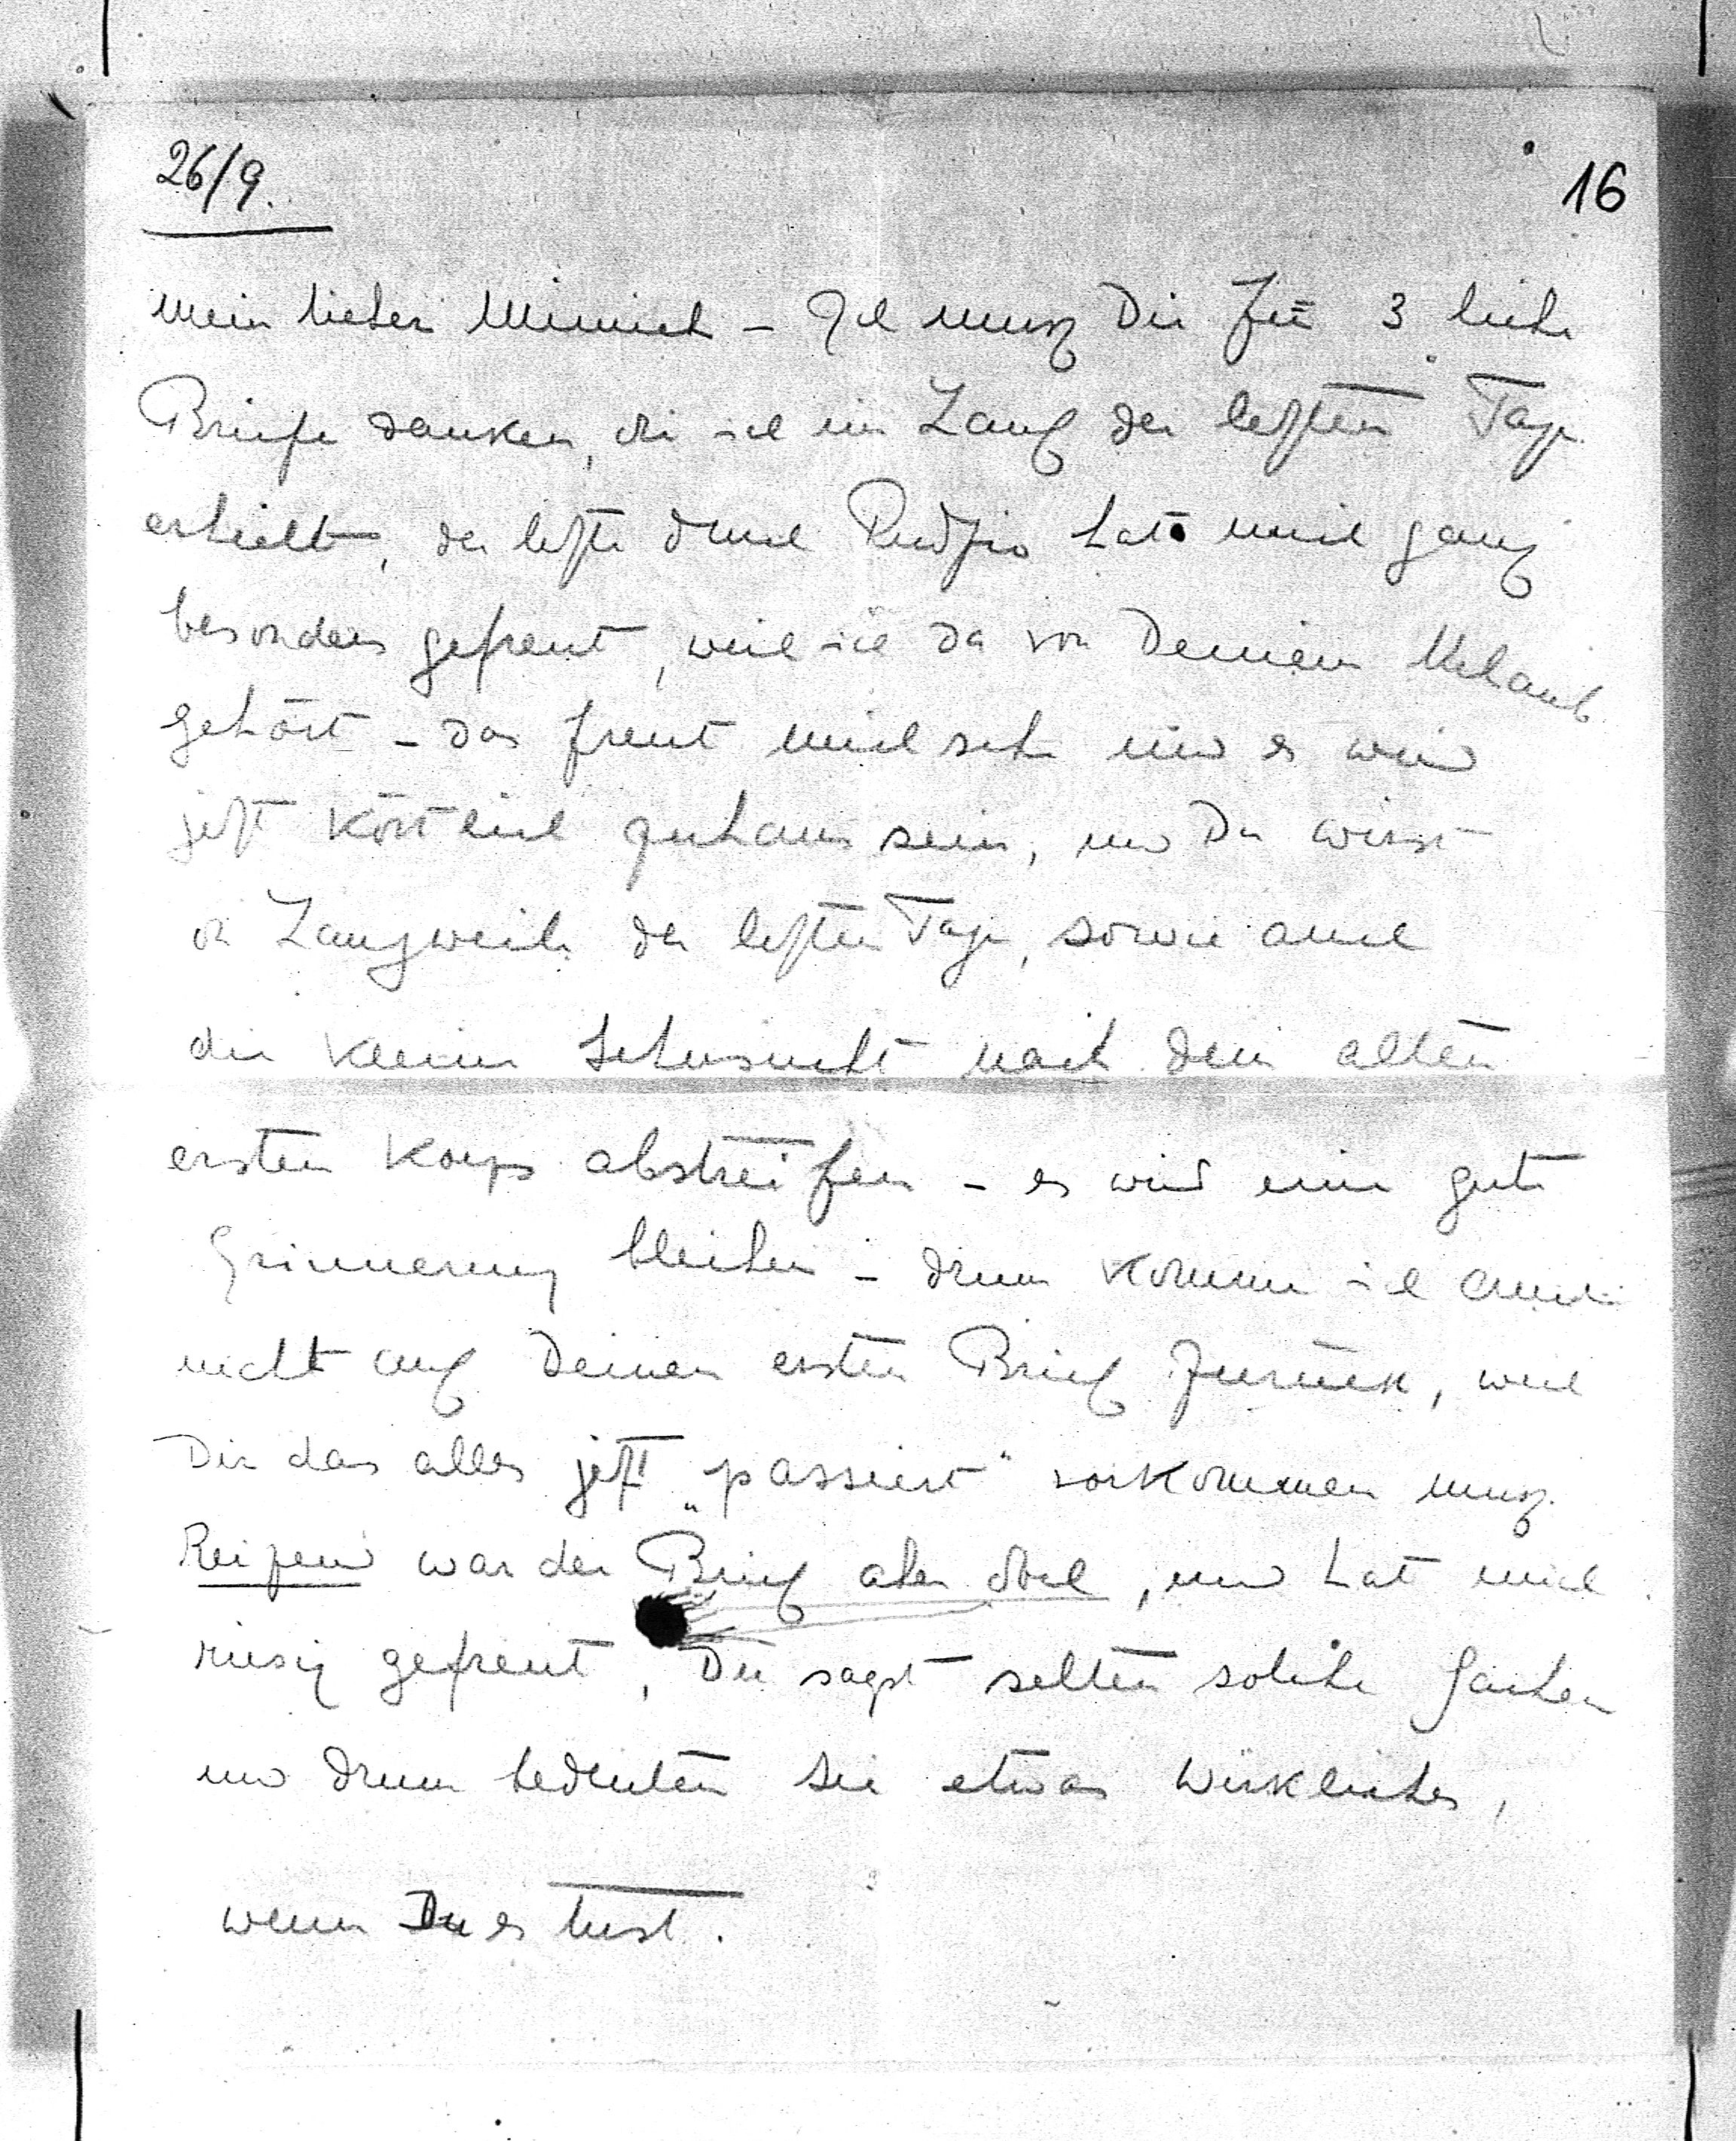 26/9.
16
mein lieber Mimich – Ich muss Dir für 3 liebe
Briefe danken, die ich im Lauf der letzten Tage
erhielt, der letzte durch hat mich ganz
besonders gefreut, weil ich da von Deinem Urlaub
gehört – das freut mich sehr und es wird
jetzt köstlich zuhaus sein, und Du wirst
die Langweile der letzten Tage, sowie auch
die kleine Sehnsucht nach dem alten
ersten Korps abstreifen – es wird eine gute
Erinnerung bleiben – drum komme ich auch
nicht auf Deinen ersten Brief zurück, weil
Dir das alles jetzt „passiert" vorkommen muss.
Reizend war der Brief aber doch, und hat mich
riesig gefreut, Du sagst selten solche Sachen
und drum bedeuten sie etwas Wirkliches,
wenn Du es tust.